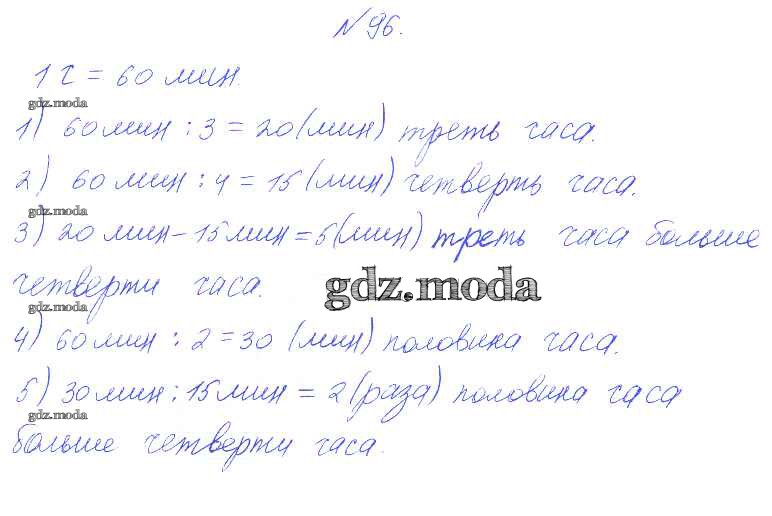 №96.
1 г = 60 мин.
gdz.moda
1) 60 мин : 3 = 20 (мин) треть часа.
2) 60 мин : 4 = 15 (мин) четверть часа.
gdz.moda
3) 20 мин - 15 мин = 5 (мин) треть часа больше
четверти часа. gdz.moda
gdz.moda
4) 60 мин : 2 = 30 (мин) половина часа.
5) 30 мин : 15 мин = 2 (раза) половина часа
gdz.moda
больше четверти часа.